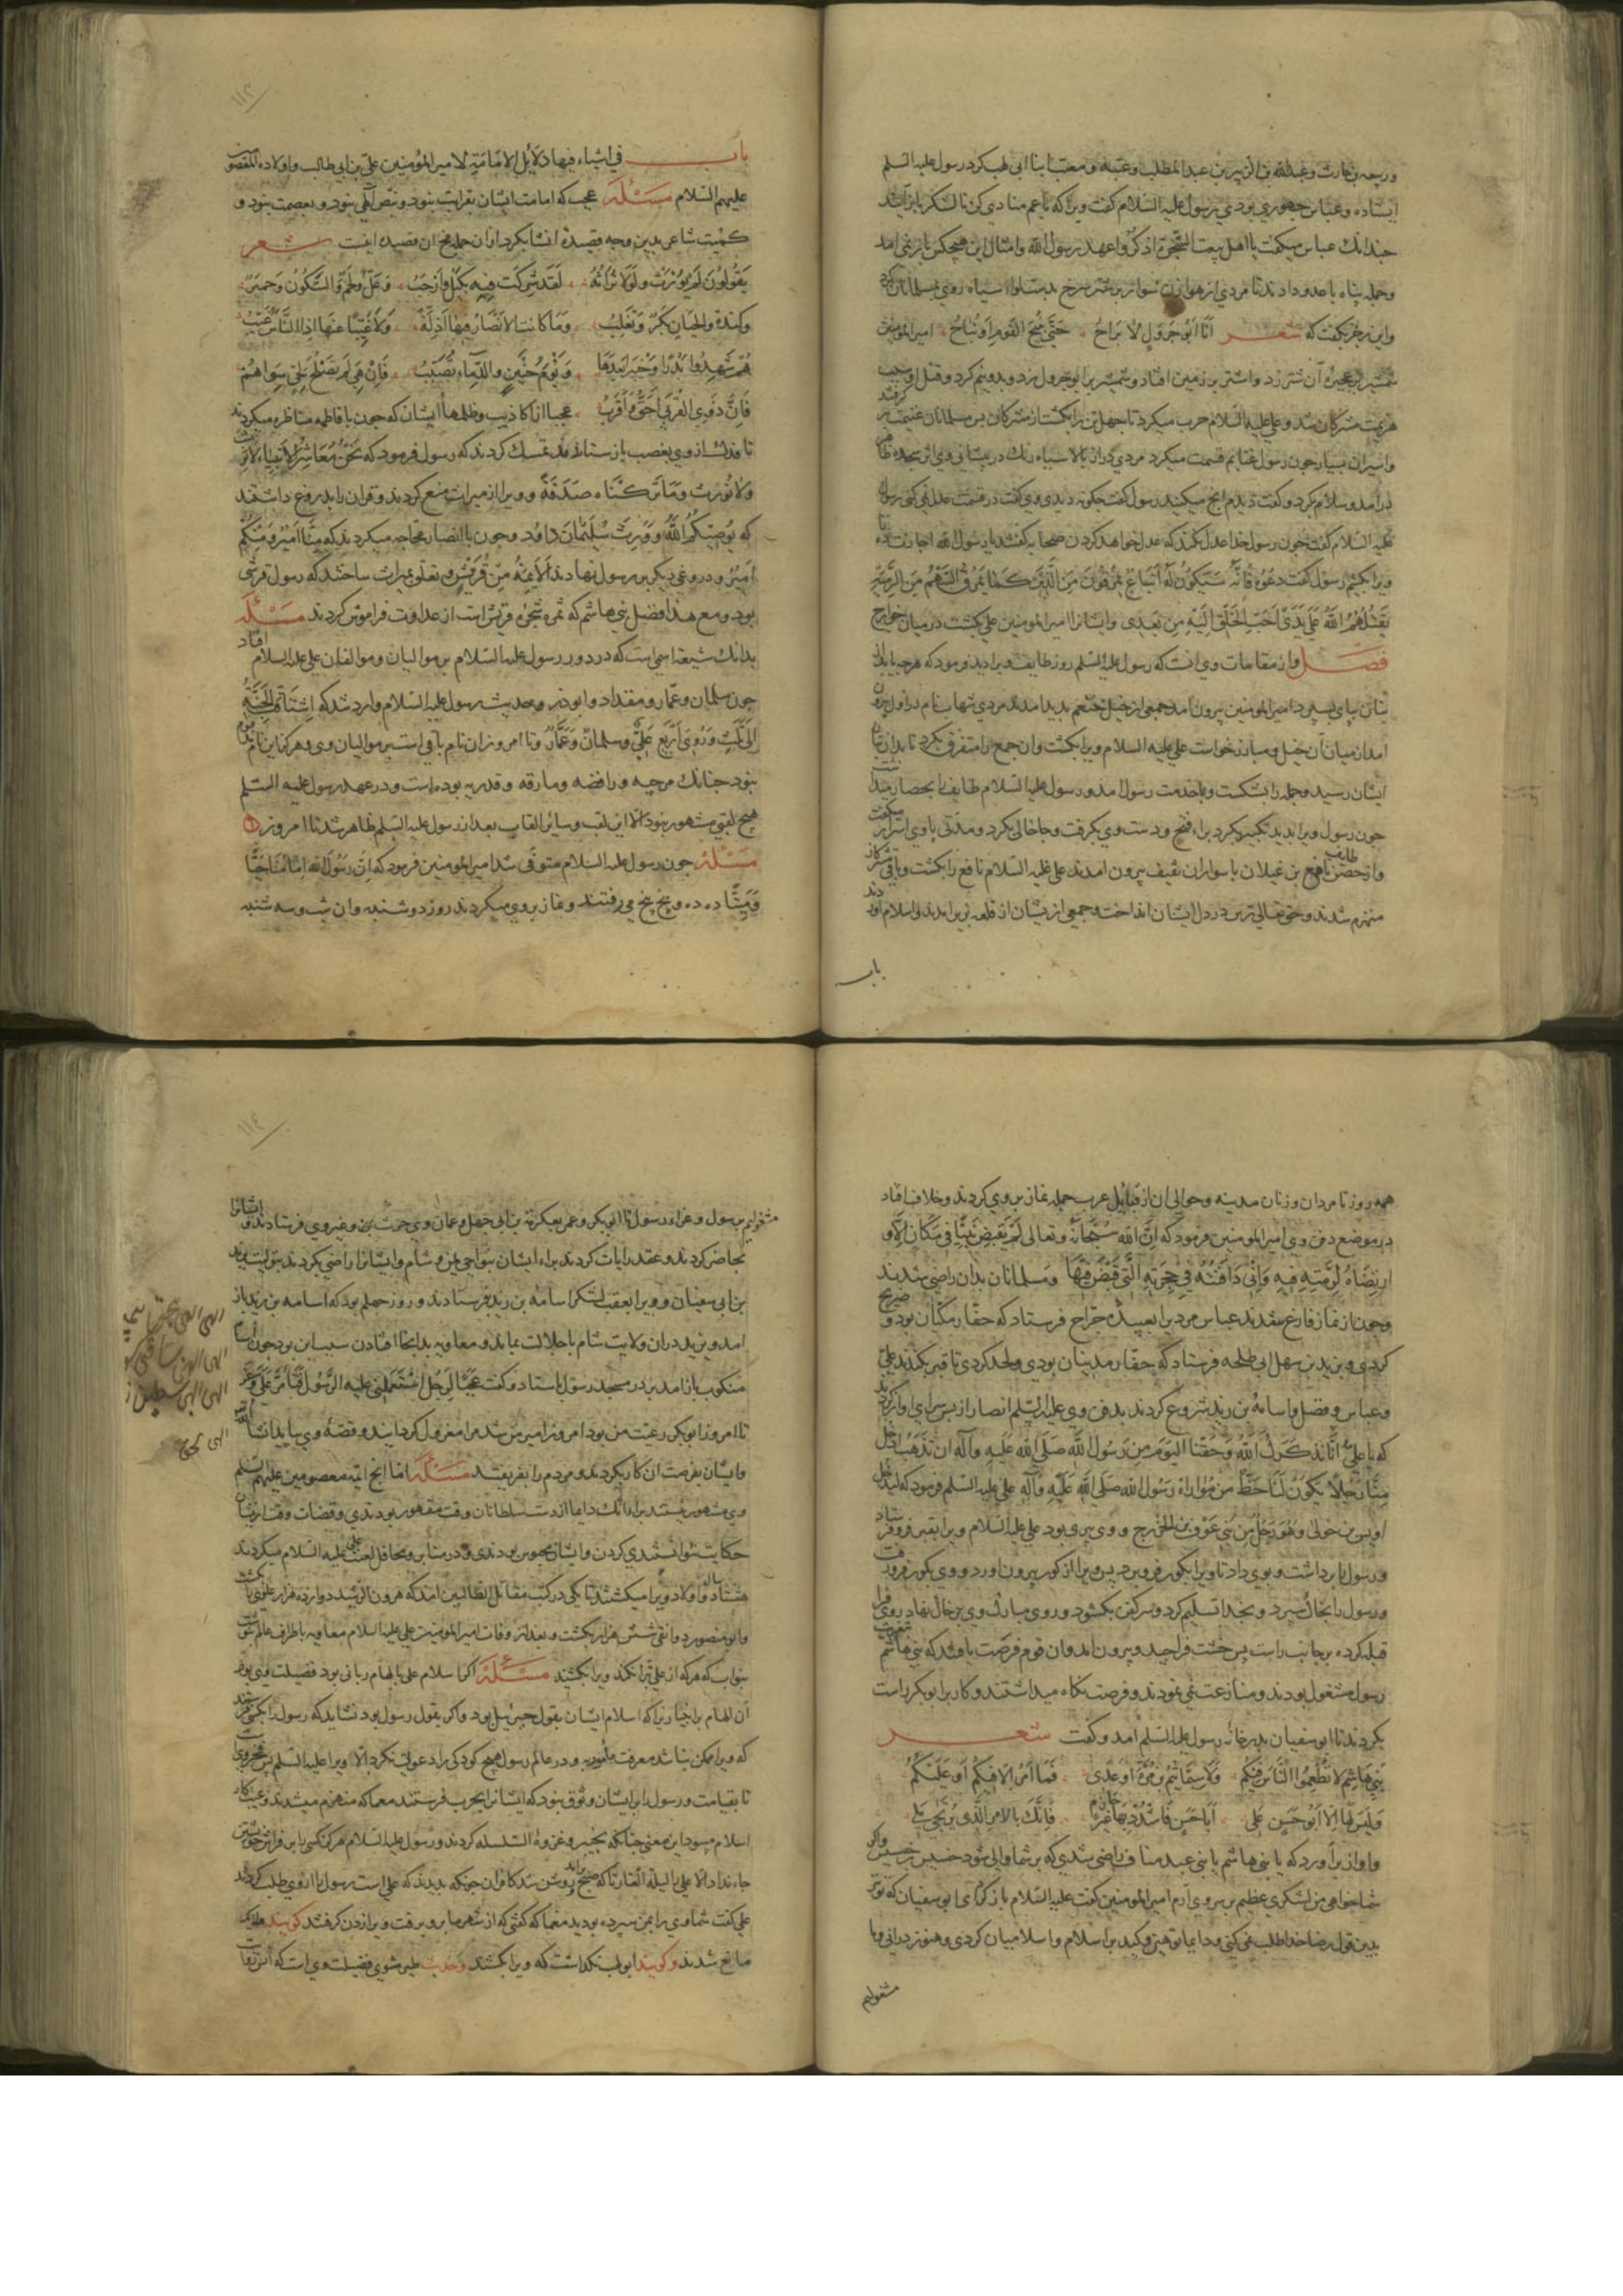 وربیعه بن حارث وعبدالله بن الزبیر بن عبدالمطلب وعتبه ومعتب ابنا ابی لهب کرد رسول علیه السلم
ایستاده وعباس جهوری بودی رسول علیه السلام کفت ویرا که یا عم منادی کن تا لشکر باز آیند
جندانك عباس میکفت یا اهل بیعت الشجرة اذکروا عهد رسول الله وامثال این هیچکس باز نمی امد
وجمله پناه با عدو دادند تا مردی از هوازن سوار بر شتر سرخ بدست لوا سیاه روی بمسلمانان کرد
واین رجز بکفت که شعر انا ابو جرول لا براح حتی نبیح القوم او نباح امیرالمومنین
شمشیر بر آن شتر زد واشتر بر زمین افتاد وشمشیر بر ابو جرول زد وبدونیم کرد وقتل او سبب
هزیمت مشرکان شد وعلی علیه السلام حرب میکرد تا جهل تن را بکشت از مشرکان پس مسلمانان غنیمت بر کرفتند
واسیران بسیار جون رسول غنایم قسمت میکرد مردی دراز بالا سیاه رنك در پیشانی وی اثر سجده ظاهر
درامد وسلام کرد وکفت دیدم انج میکنید رسول کفت جکونه دیدی وی کفت در قسمت عدل نمی کنی رسول
علیه السلام کفت جون رسول خدا عدل نکند که عدل خواهد کردن صحابه کفتند یا رسول الله اجازت ده تا
ویرا بکشیم رسول کفت دعوه فانه سیکون له اتباع یمرقون من الدین کما یمرق السهم من الرمیة
یقتلهم الله علی یدی احب الخلق الیه من بعدی وایشانرا امیرالمومنین علی بکشت در میان خوارج
فصل واز مقامات وی انست که رسول علیه السلم روز طایف ویرا دید وفرمود که هرجه یابد از
بتان بپای بسپرد امیرالمومنین بیرون آمد جمعی از خیل خثعم بدید امدند مردی شهاب نام در اول بیرون
امد از میان آن خیل ومبارز خواست علی علیه السلام ویرا بکشت وان جمع را متفرق بکرد تا بدان بتان
ایشان رسید وجمله را بشکست وبا خدمت رسول امد ورسول علیه السلام طایف را بحصار میداشت
جون رسول ویرا بدید تکبیر بکرد براء فتح ودست وی بکرفت وجا خالی بکرد ومدتی با وی اسرار میکفت
واز حصن طایف نافع بن غیلان با سواران ثقیف بیرون امدند علی علیه السلام نافع را بکشت وباقی مشرکان
منهزم شدند وحق تعالی ترس در دل ایشان انداخت وجمعی از یشان از قلعه بزیر امدند واسلام اوردند
باب
۱۱۳
باب فی اشیاء فیها دلایل الامامة لامیرالمؤمنین علی بن ابی طالب واولاده المعصومین
علیهم السلام مسئلة عجب که امامت ایشان بقرابت بنود ونص آلهی بنود وبعصمت بنود و
کمیت شاعر بدین وجه قصیدۀ انشا بکرد از ان جمله مخ ان قصیده اینست شعر
یقولون لم یورث ولولا تراثه لقد شرکت فیه بکیل وارحب وعك ولخم والسکون وحمیر
وکندة والحیان بکر وتغلب وما کانت الانصار فیها اذلة ولا غیبا عنها اذا الناس غیب
هم شهدوا بدرا وخیبر بعدها ویوم حنین والدماء تصبب فان هی لم تصلح لحی سواهم
فان ذوی القربی احق واقرب عجبا از اکاذیب وظلمها ایشان که جون با فاطمه مناظره میکردند
تا فدك از وی بغصب باز ستانند تمسك کردند که رسول فرمود که نحن معاشر الانبیاء لا نرث
ولا نورث وما ترکناه صدقة وویرا از میراث منع کردند وقران را بدروغ داشتند
که یوصیکم الله وورث سلیمان داود وجون با انصار محاجه میکردند که منا امیر ومنکم
امیر ودروغی دیکر بر رسول نهادند الائمة من قریش وتعلق بمیراث ساختند که رسول قرشی
بود ومع هذا فضل بنی هاشم که ثمره شجرۀ قریش است از عداوت فراموش کردند مسئلة
بدانك شیعة اسمی است که در دور رسول علیه السلام بر موالیان وموالفان علی علیه السلام افتاد
جون سلمان وعمار ومقداد وابوذر وحدیث رسول علیه السلام وارد شد که اشتاقت الجنة
الی ثلث وروی اربع علی وسلمان وعمار وتا امروز ان نام باقی است بر موالیان وی وهرکز این نام
بنود جنانك مرجیه ورافضه ومارقه وقدریه بوده است ودر عهد رسول علیه السلم
هیچ لقبی مشهور بنود الا این لقب وسایر القاب بعد از رسول علیه السلم ظاهر شد تا امروز
مسئلة جون رسول علیه السلام متوفی شد امیرالمومنین فرمود که ان رسول الله امامنا حیا
ومیتا ده ده وپنج پنج می رفتند ونماز بر وی میکردند روز دوشنبه وان شب وسه شنبه
همه روز تا مردان وزنان مدینه وحوالی ان از قبایل عرب جمله نماز بر وی کردند وخلاف افتاد
در موضع دفن وی امیرالمومنین فرمود که ان الله سبحانه وتعالی لم یقبض نبیا فی مکان الا و
ارتضاه لرمته فیه وانی دافنه فی حجرته التی قبض فیها ومسلمانان بدان راضی شدند
وجون از نماز فارغ شدند عباس مردیرا بعبیده جراح فرستاد که حفار مکیان بود و ضریح
کردی وبزید بن سهل ابی طلحه فرستاد که حفار مدینیان بودی ولحد کردی تا قبر بکندند علی
وعباس وفضل واسامة بن زید شروع کردند بدفن وی علیه السلم انصار از پس سرای اواز کردند
که یا علی انا نذکرك الله وحقنا الیوم من رسول الله صلی الله علیه وآله ان تذهب ادخل
منا رجلا یکون لنا حظ من مواراة رسول الله صلی الله علیه وآله علی علیه السلم فرمود که لیدخل
اویس بن خولی وهو رجل من بنی عوف بن الخزرج ووی بدری بود علی علیه السلام ویرا بقبر فرو فرستاد
ورسول را برداشت وبوی داد تا ویرا بکور فرو برد پس ویرا از کور بیرون اورد ووی بکور فرو رفت
ورسول را بخاك سپرد وبخدا تسلیم کرد وسر کفن بکشود وروی مبارك وی بر خاك نهاد روی فرا
قبله کرده بر جانب راست پس خشت فراجید وبیرون امد وان قوم فرصت یافتند که بنی هاشم بتعزیت
رسول مشغول بودند ومنازعت نمی نمودند وفرصت نکاه میداشتند وکار بر ابو بکر راست
بکردند تا ابو سفیان بدر خانۀ رسول علیه السلم امد وکفت شعر
بنی هاشم لا تطمعوا الناس فیکم ولا سیما تیم بن مرة او عدی فما الامر الا فیکم او علیکم
ولیس لها الا ابو حسن علی ابا حسن فاشدد بها کف حازم فانك بالامر الذی یرتجی ملی
واواز بر اورد که یا بنی هاشم یا بنی عبد مناف راضی شدی که بر شما والی شود خسیس بن خسیس واکر
شما خواهی من لشکری عظیم بر سر وی آرم امیرالمومنین کفت علیه السلام باز کرد ای ابو سفیان که تو
بدین قول رضا خدا طلب نمی کنی ودایما توهین وکید بر اسلام واسلامیان کردی وهنوز درانی وما
مشغولیم
۱۱٤
مشغولیم برسول وعزاء رسول تا ابو بکر وعمر بعکرمة بن ابی جهل وعمان وی حرث بن وغیر وی فرستادند وایشانرا
بحاضر کردند وعقد رایات کردند براء ایشان بنواحی یمن وشام وایشانرا راضی بکردند بتولیت یزید
بن ابی سفیان وویرا بعقب لشکر اسامه بن زید بفرستادند وروز جهلم بود که اسامه بن زید باز
امد ویزید در ان ولایت شام با جلالت بماند ومعاویه بدانجا افتادن سبب این بود جون اسامه
منکوب باز امد بدر مسجد رسول باستاد وکفت عجبا لرجل استعملنی علیه الرسول فتأمر علی وعزلنی
تا امروز ابو بکر رعیت من بود امروز امیر من شد مرا معزول کردانید وقصۀ وی بپایان نشد
وایشان بفرصت ان کار بکردند ومردم را بفریفتند مسئلة اما انج ایمه معصومین علیهم السلم
وی مشهور نیستند براء انك دایما از دست سلطانان وقت مقهور بودندی وقضات وقت ازیشان
حکایت نتوانستندی کردن وایشان محبوس بودندی ودر منابر ومحافل لعنت علی علیه السلام میکردند
هشتاد سال واولاد ویرا میکشتند تا یکی در کتب مقاتل الطالبیین امد که هرون الرشید دوازده هزار علوی را بکشت
وابو منصور دوانقی شش هزار بکشت وبعد از وفات امیرالمومنین علی علیه السلام معاویه باطراف عالم
بنواب که هرکه از علی تبرا نکند ویرا بکشید مسئلة اکر اسلام علی بالهام ربانی بود فضیلت وی بود
آن الهام بر انبیا زیرا که اسلام ایشان بقول جبرئیل بود واکر بقول رسول بود نشاید که رسول را بکسی فرستند
که ویرا ممکن نباشد معرفت مامور به ودر عالم رسول هیچ کودکی را دعوت نکرد الا ویرا علیه السلم
تا بقیامت ورسول را بر ایشان وثوق بنود که ایشانرا بحرب فرستند معما که منهزم میشدند وعیب کار
اسلام میبود این معنی جنانکه بخیبر وغزوۀ السلسله کردند ورسول علیه السلام هرکز کسی را بر فراش خویش
جاء نداد الا علی را لیلة الغار تا که صبح روشن شد کافران جونکه بدیدند که علی است رسول را از وی طلب کردند
علی کفت شما ویرا بمن سپرده بودید معما که کفتی که از شهر ما برو برفت ویرا زدن کرفتند کویند
مانع شدند وکویند ابو لهب نکذاشت که ویرا بکشند وحدیث طیر مشوی فضیلت وی است که انس